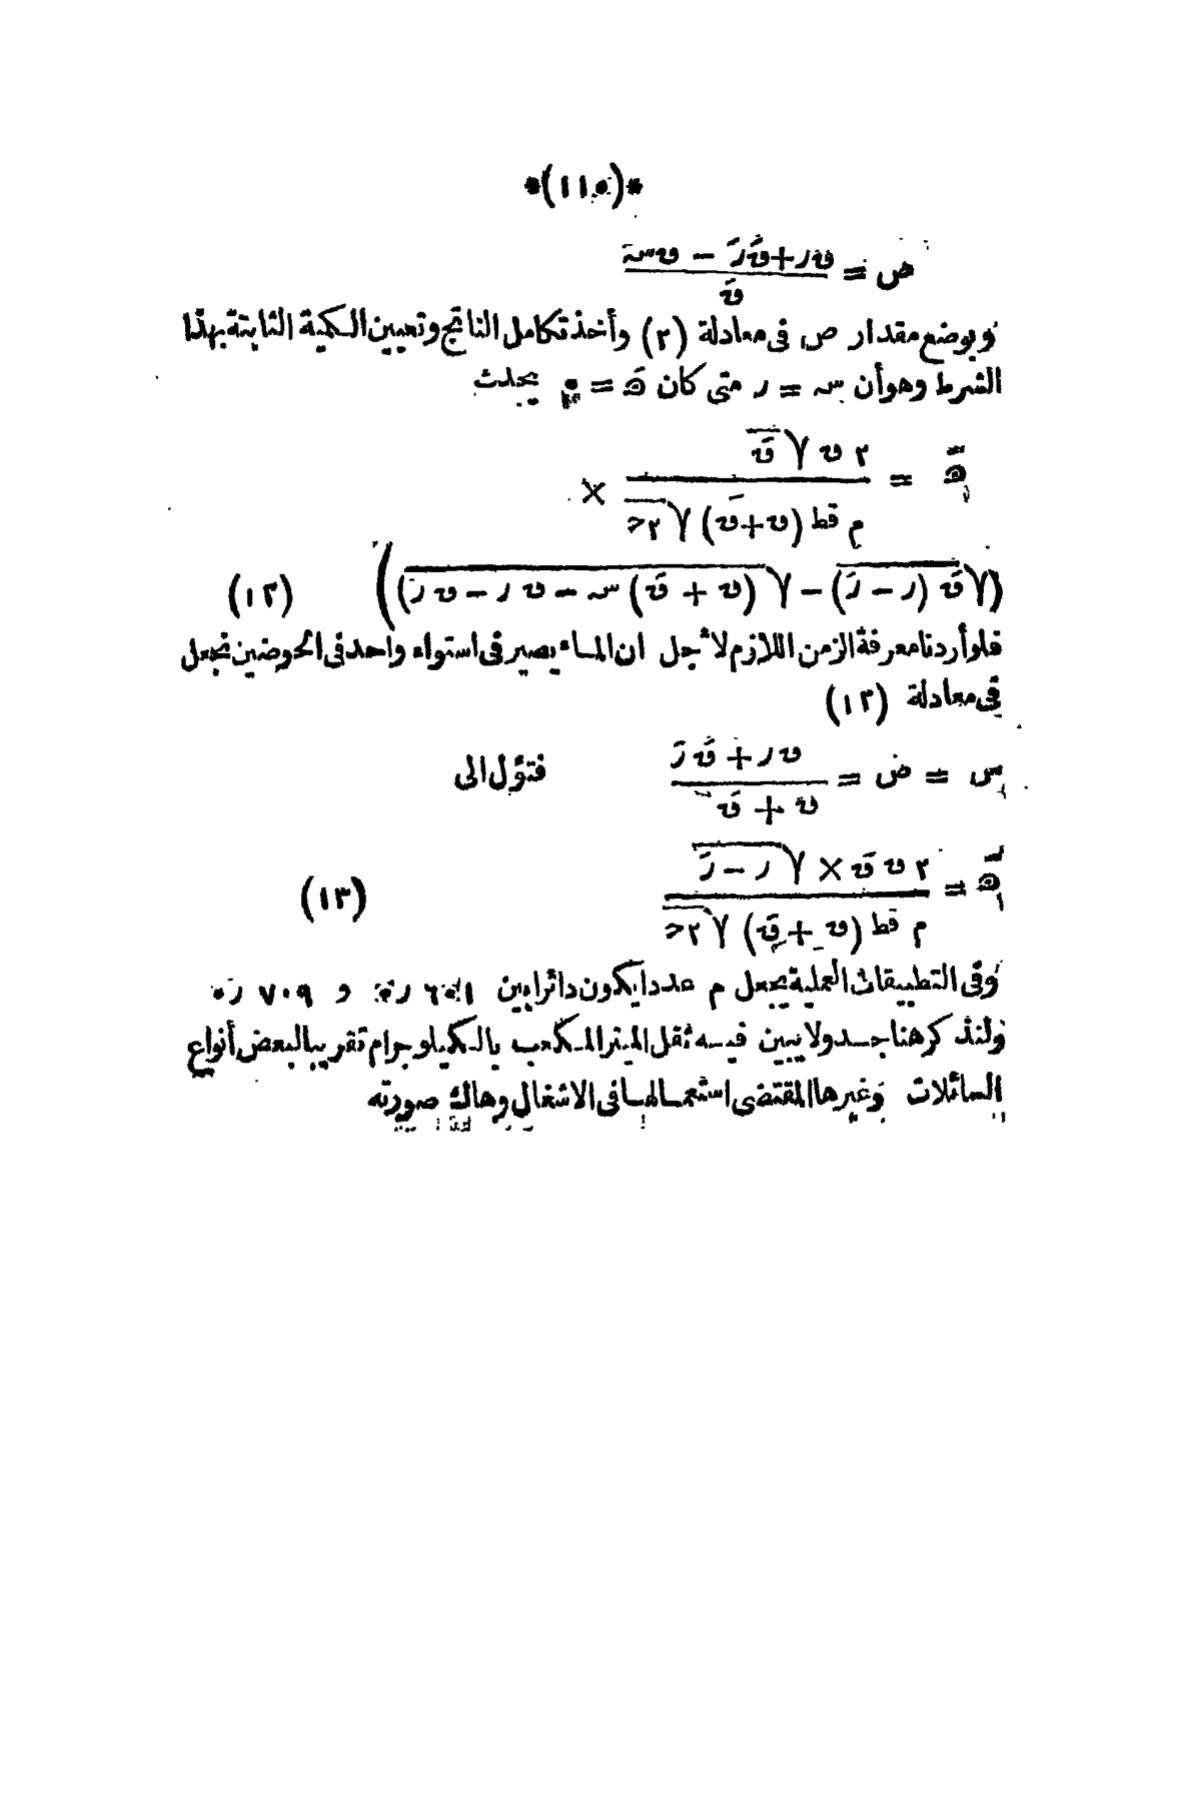 *(١١٥)*
ص = (ں ر + ںَ رَ − ں س) / ںَ
وبوضع مقدار ص فى معادلة (٢) وأخذ تكامل الناتج وتعيين الكمية الثابتة بهذا
الشرط وهو أن س = ر متى كان هَ = ٠ يحدث
هَ = (٢ ں √ںَ) / (م قط (ں + ںَ) √٢ح) ×
(√ںَ (ر − رَ) − √((ں + ںَ) س − ں ر − ں رَ)) (١٢)
فلو أردنا معرفة الزمن اللازم لأجل ان الماء يصير فى استواء واحد فى الحوضين نجعل
فى معادلة (١٢)
س = ض = (ں ر + ںَ رَ) / (ں + ںَ) فتؤل الى
هَ = (٢ ں ںَ × √(ر − رَ)) / (م قط (ں + ںَ) √٢ح) (١٣)
وفى التطبيقات العملية يجعل م عددا يكون دائرا بين و ٧٠٩ ر٠
ولنذكر هنا جدولا يبين فيه ثقل المتر المكعب بالكيلوجرام تقريبا لبعض أنواع
السائلات وغيرها المقتضى استعمالها فى الاشغال وهاك صورته